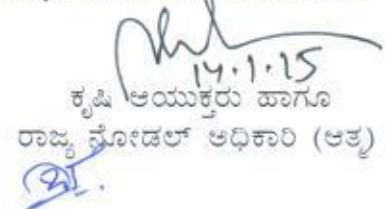 14.1.15
ಕೃಷಿ ಆಯುಕ್ತರು ಹಾಗೂ
ರಾಜ್ಯ ನೋಡಲ್ ಅಧಿಕಾರಿ (ಆತ್ಮ)